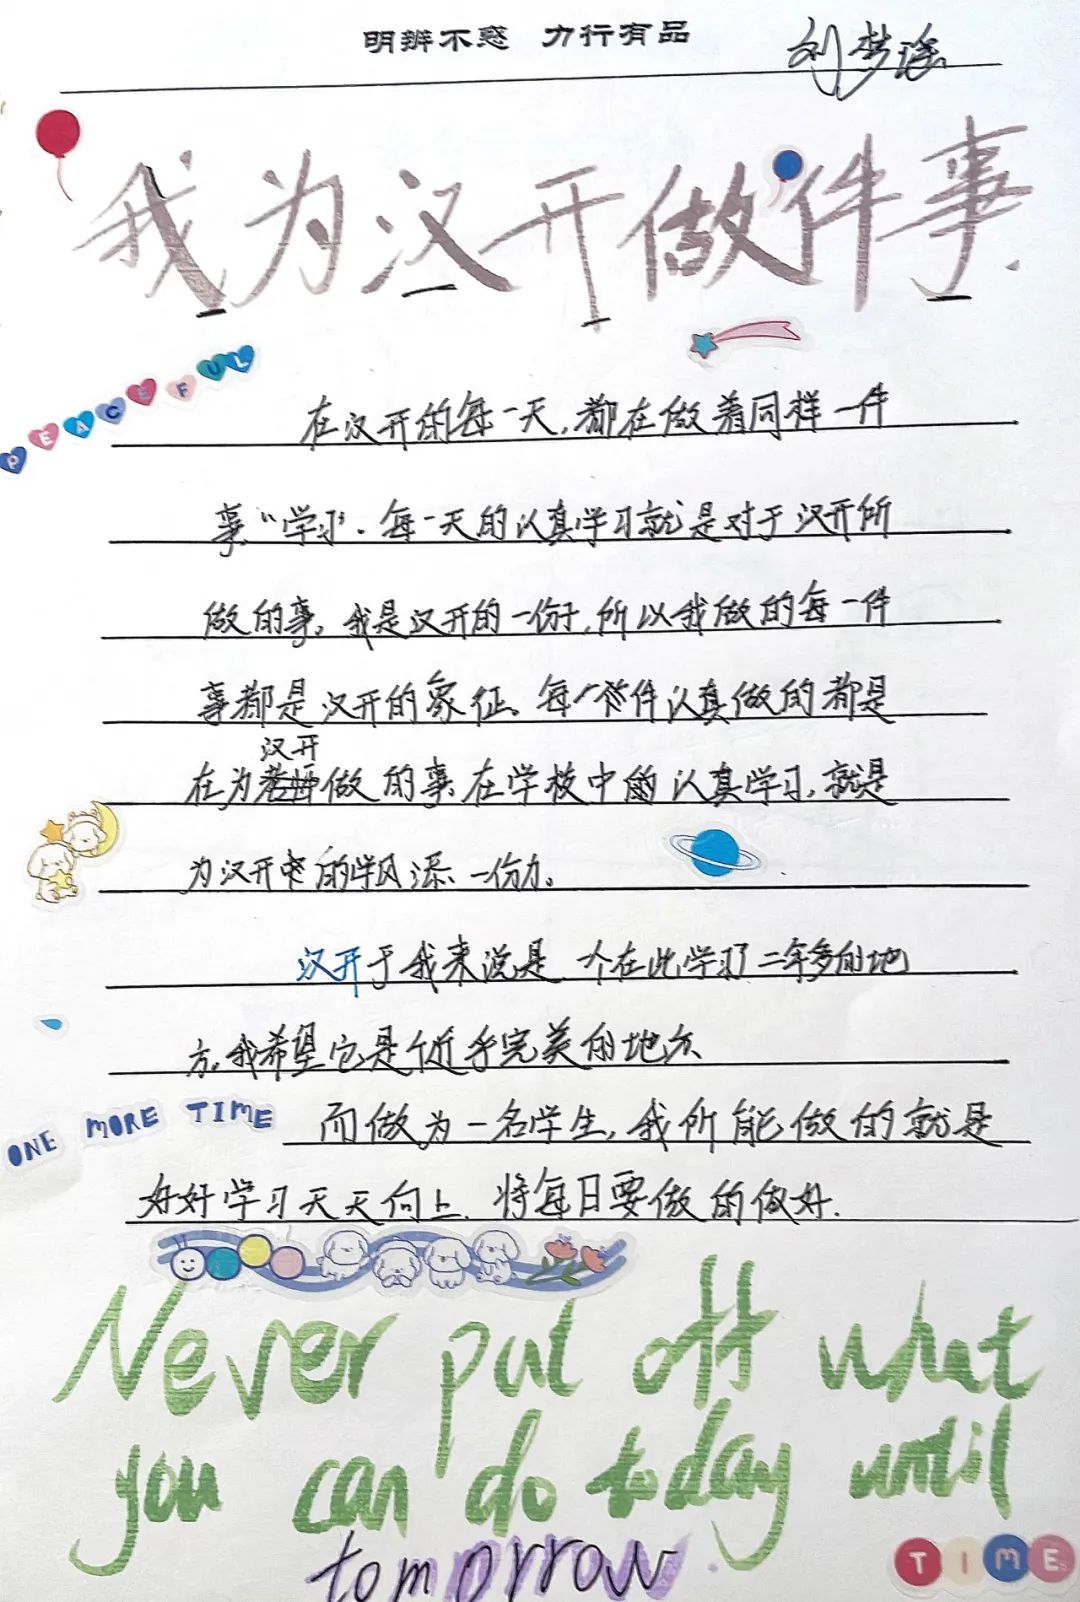 明辨不惑 力行有品
刘梦瑶
我为汉开做件事.
PEACEFUL
在汉开的每一天,都在做着同样一件
事“学习”.每一天的认真学习就是对于汉开所
做的事。我是汉开的一份子,所以我做的每一件
事都是汉开的象征、每一件认真做的都是
汉开
在为做的事.在学校中的认真学习,就是
为汉开的学风添一份力。
汉开于我来说是一个在此学习了二年多的地
方,我希望它是个近乎完美的地方、
ONE MORE TIME 而做为一名学生,我所能做的就是
好好学习天天向上.将每日要做的做好.
Never put off what
you can do today until
tomorrow.
TIME